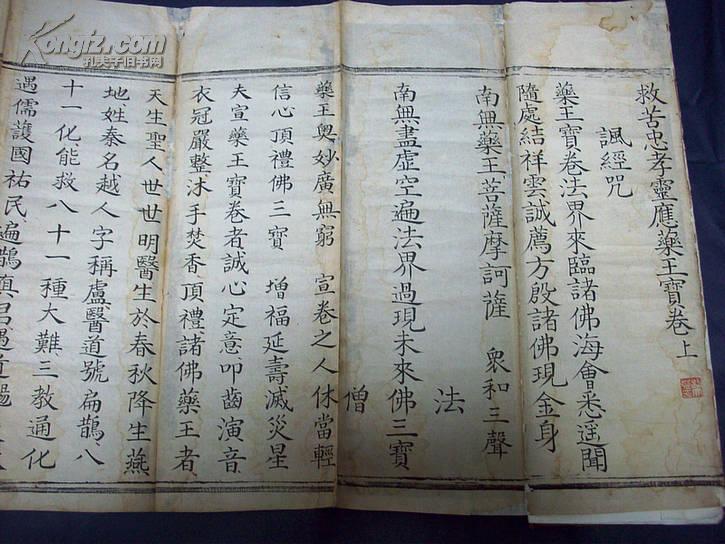 救苦忠孝靈應藥王寶卷上
諷經咒
藥王寶卷法界來臨諸佛海會悉遥聞
隨處結祥雲誠薦方殷諸佛現金身
南無藥王菩薩摩訶薩 衆和三聲
法
南無盡虛空遍法界過現未來佛三寶
僧
藥王奥妙廣無窮 宣卷之人休當輕
信心頂禮佛三寶 增福延壽滅災星
夫宣藥王寶卷者誠心定意叩齒演音
衣冠嚴整沐手焚香頂禮諸佛藥王者
天生聖人世世明醫生於春秋降生燕
地姓秦名越人字稱盧醫道號扁鵲八
十一化能救八十一種大難三教通化
遇儒護國祐民遍鵲
Kongfz.com
孔夫子旧书网